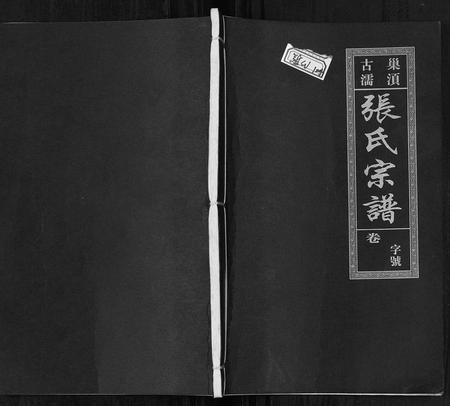 古巢
濡湏
張氏宗譜
卷
字號